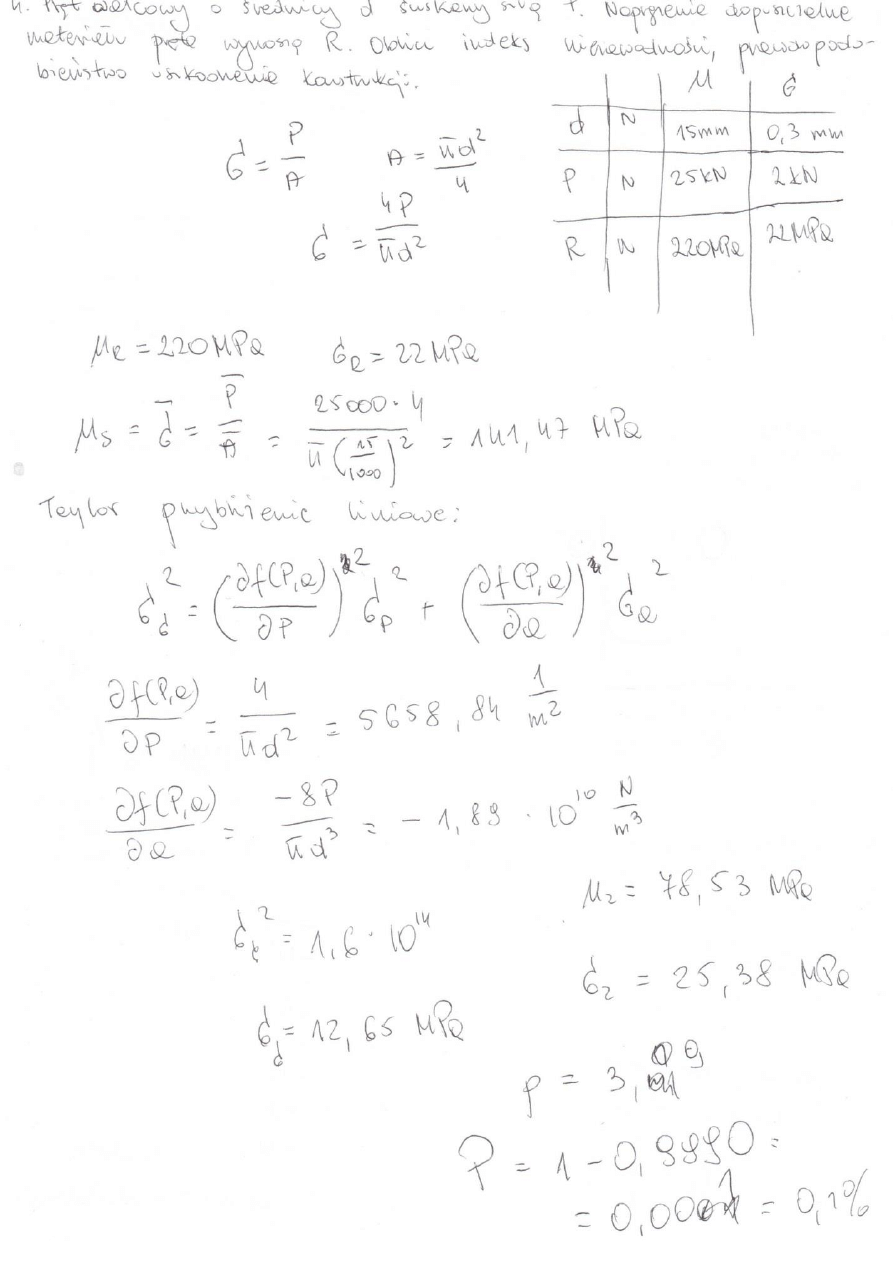 4. Pręt walcowy o średnicy d ściskany siłą P. Naprężenie dopuszczalne
materiału pręta wynoszą R. Oblicz indeks niezawodności, prawdopodo-
bieństwo uszkodzenia konstrukcji.
μ σ
d N 15mm 0,3 mm
P N 25kN 2kN
R N 220MPa 22MPa
σ = P/A A = πd²/4
σ = 4P/πd²
μR = 220MPa σR = 22MPa
μS = σ̄ = P̄/Ā = 25000·4/π(15/1000)² = 141,47 MPa
Taylor przybliżenie liniowe:
σσ² = (∂f(P,Q)/∂P)² σP² + (∂f(P,Q)/∂Q)² σQ²
∂f(P,Q)/∂P = 4/πd² = 5658,84 1/m²
∂f(P,Q)/∂Q = -8P/πd³ = -1,89 · 10¹⁰ N/m³
μz = 78,53 MPa
σσ² = 1,6·10¹⁴
σz = 25,38 MPa
σσ = 12,65 MPa
β = 3,09
P = 1 - 0,9990 =
= 0,001 = 0,1%